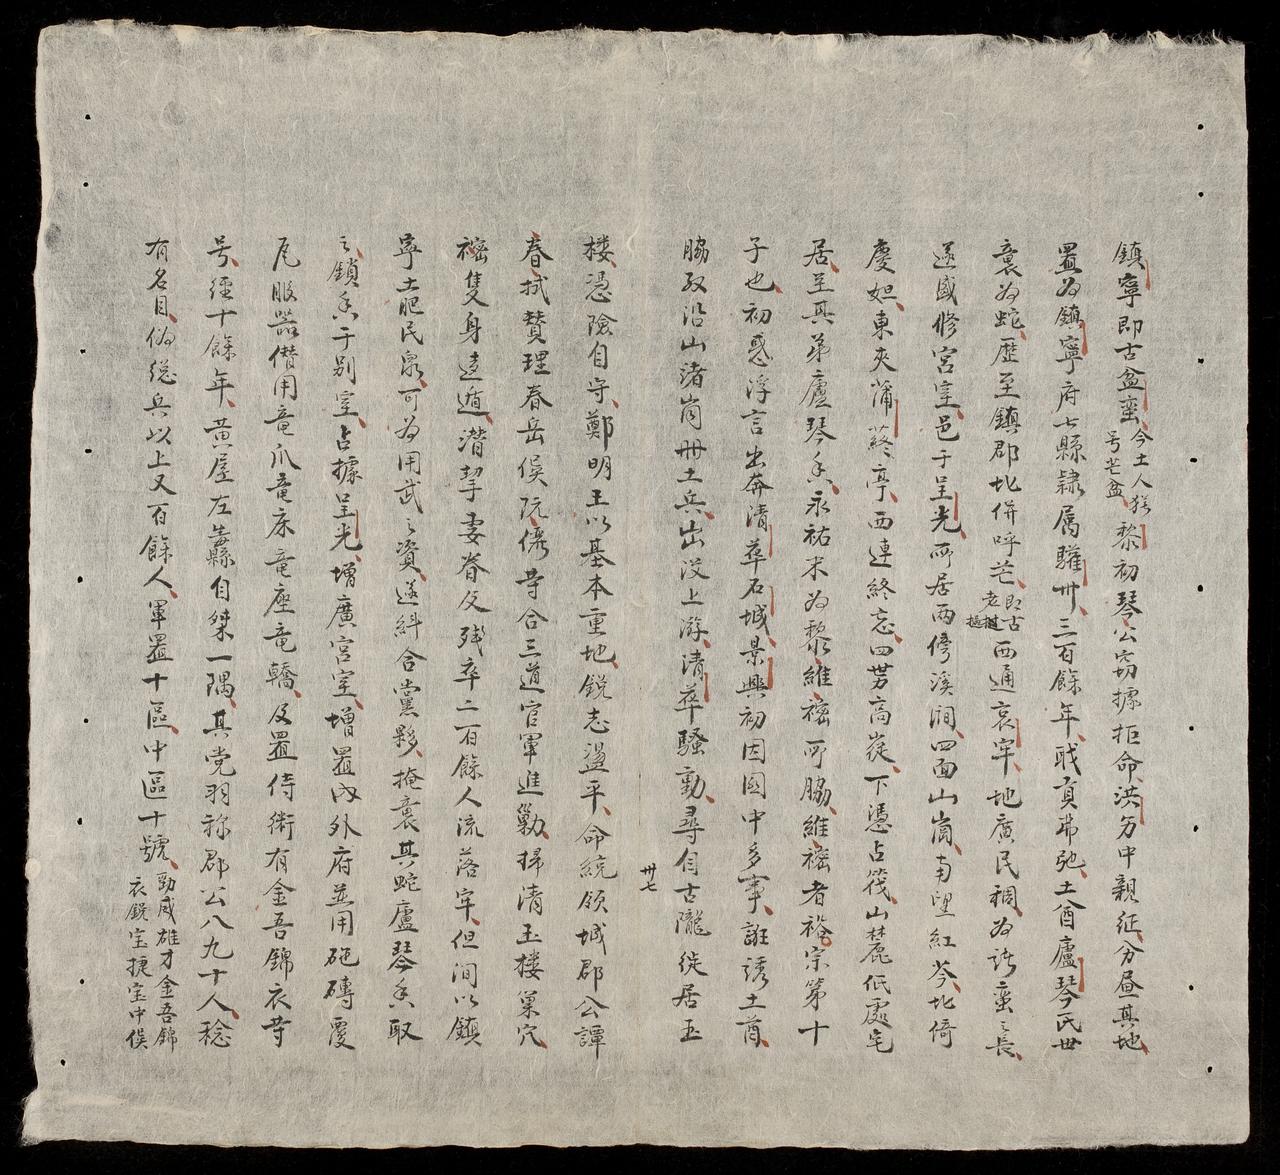 鎮寧即古盆蛮今土人猶号芒盆黎初琴公窃據拒命洪夯中親征分昼其地
置為鎮寧府七縣隷属驩卅三百餘年、戝貢弗弛、土酋廬琴氏世
裏為蛇、歴至鎮郡北併呼芒、即古老撾西通哀牢、地廣民稠、為諸蛮之長、
遂盛修宮室、邑于呈光、所居两傍溪澗、四面山崗、南望紅岑、北倚
慶妲、東夾蒲終亭、西連終忘、四芳高嵸、下憑占筏山麓、低處宅
居、至其弟廬琴、永祐末為黎維禠所脇、維禠者、裕宗第十
子也、初惑浮言、出奔清華石城、景興初因國中多事、誑誘土酋、
脇权沿山渚崗冊土兵、出没上游、清華騷動、尋自古隴徙居玉
卅七
楼、憑險自守、鄭明王以基本重地、鋭志盪平、命統領城郡公譚
春、拭賛理春岳侯阮儁等合三道官軍進勦、掃清玉楼巢穴、
禠隻身逺遁、潜挈妻眷及残卒二百餘人流落牢、但間以鎮
寧土肥民泉、可為用武之資、遂糾合黨夥、掩裏其蛇廬琴取
之、鎖于別室、占據呈光、增廣宮室、增置内外府、並用砲磚覆
瓦服器僣用竜爪竜床竜座竜轎、及置侍衛有金吾錦衣等
号、經十餘年、黄屋左纛自桀一隅、其党羽称郡公八九十人、稔
有名目、偽総兵以上又百餘人、軍置十區、中區十號、勁威雄才金吾錦衣鋭宝捷宝中侯